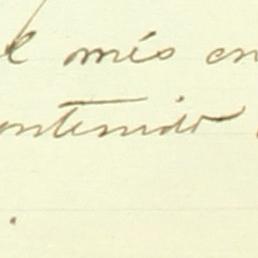 el més en
contenido